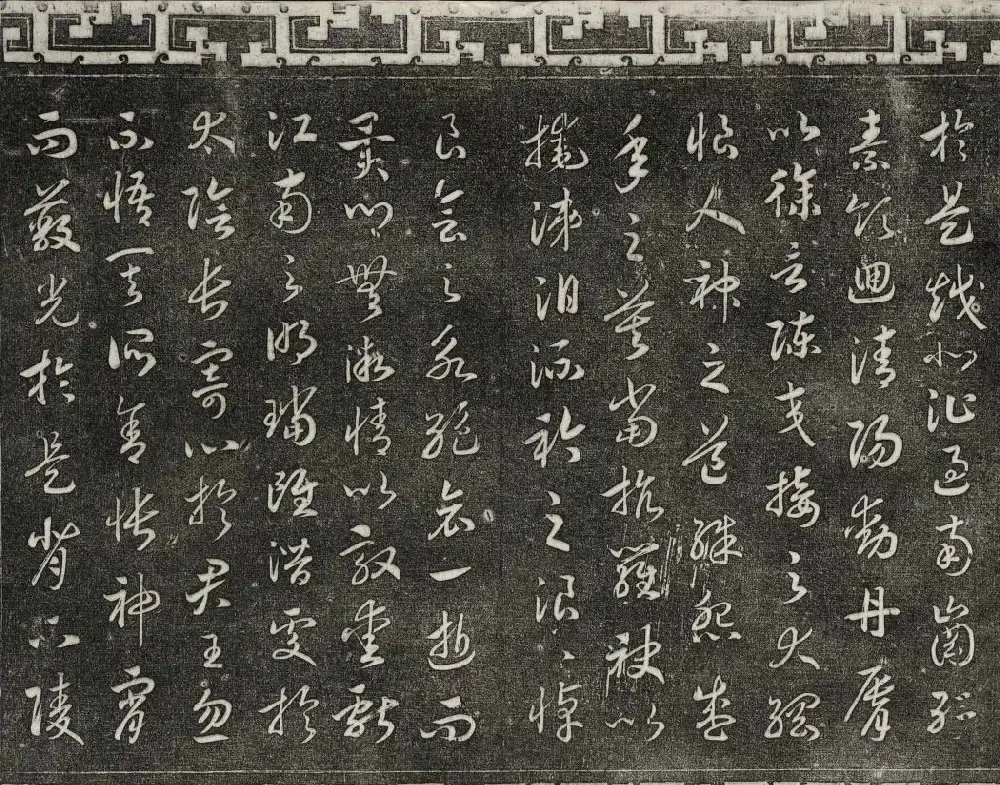 於是越北沚過南崗紆
素領迴清陽動丹脣
以徐言陳交接之大綱
恨人神之道殊怨盛
年之莫當抗羅袂以
掩涕泪流衿之浪〻悼
良會之永絕哀一逝而
異鄉無微情以效愛獻
江南之明璫雖潛處於
太陰長寄心於君王忽
不悟其所舍悵神宵
而蔽光於是背下陵